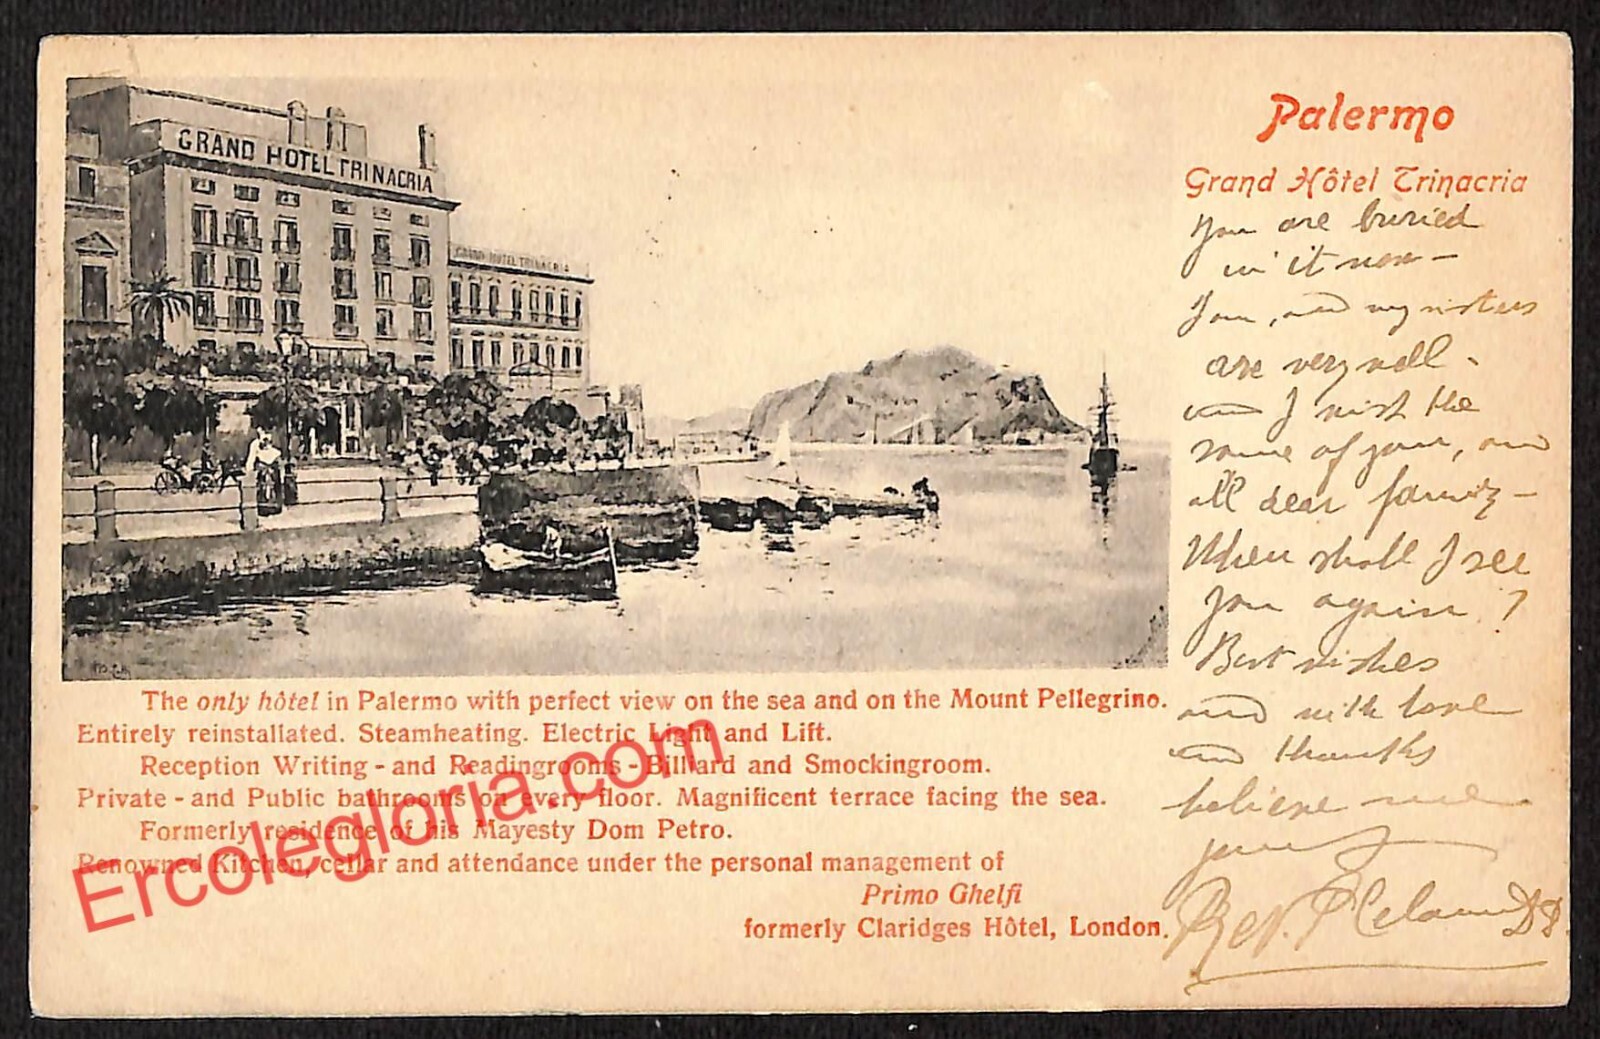 GRAND HOTEL TRINACRIA
GRAND HOTEL TRINACRIA
Palermo
Grand Hôtel Trinacria
You are buried
in it now –
You, and my sisters
are very well -
and I wish the
same of you, and
all dear family –
When shall I see
you again ?
Best wishes
and with love
and thanks
believe me
yours
Rev. P.
The only hôtel in Palermo with perfect view on the sea and on the Mount Pellegrino.
Entirely reinstallated. Steamheating. Electric Light and Lift.
Reception Writing - and Readingrooms - Billiard and Smockingroom.
Private - and Public bathrooms on every floor. Magnificent terrace facing the sea.
Formerly residence of his Mayesty Dom Petro.
Renowned Kitchen, cellar and attendance under the personal management of
Primo Ghelfi
formerly Claridges Hôtel, London.
Ercolegloria.com